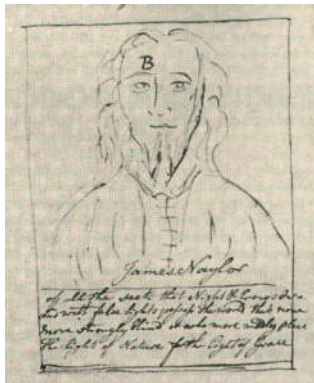 B
James Naylor
of all the sects that Night & Errors own
with false lights possess the world that none
more strongly blind who more place
the light of Nature for the light of Grace